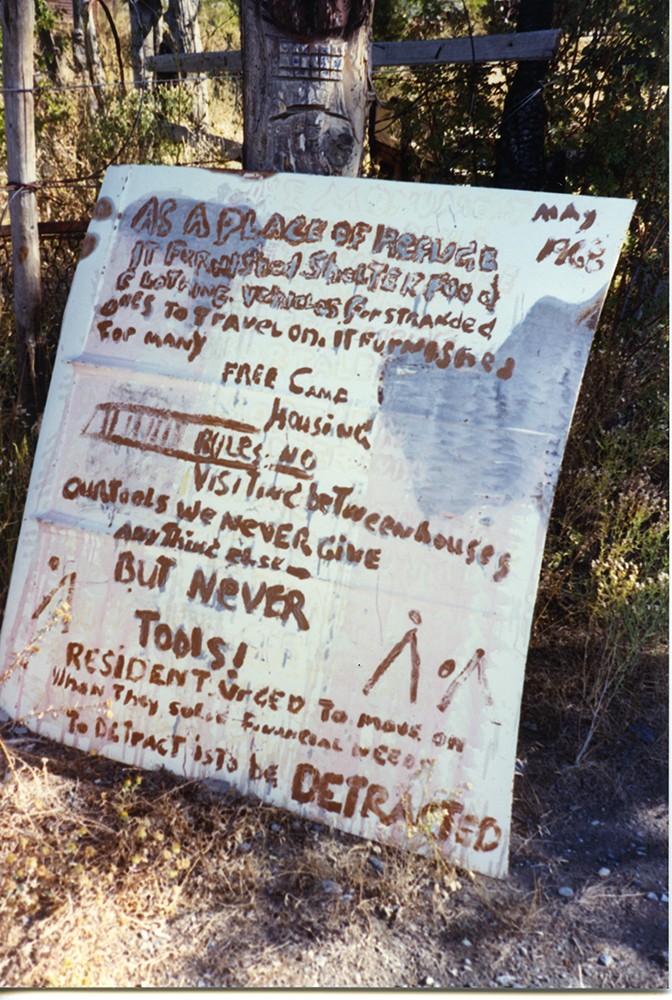 MAY
AS A PLACE OF REFUGE
IT FURNISHED SHELTER FOOd
CLOTHING. VEHICLES FOR STRANDED
ONES TO TRAVEL ON. IT FURNISHED
FOR MANY
FREE CAMP
HOUSING
RULES. NO
VISITING beTweenhouses
OURTOOLS WE NEVER GIVE
ANYTHING ELSE
BUT NEVER
TOOLS!
RESIDENT. URGED TO MOVE ON
WHEN THEY SOLVE FINANCIAL NEEDS
TO DETRACT IS TO BE DETRACTED